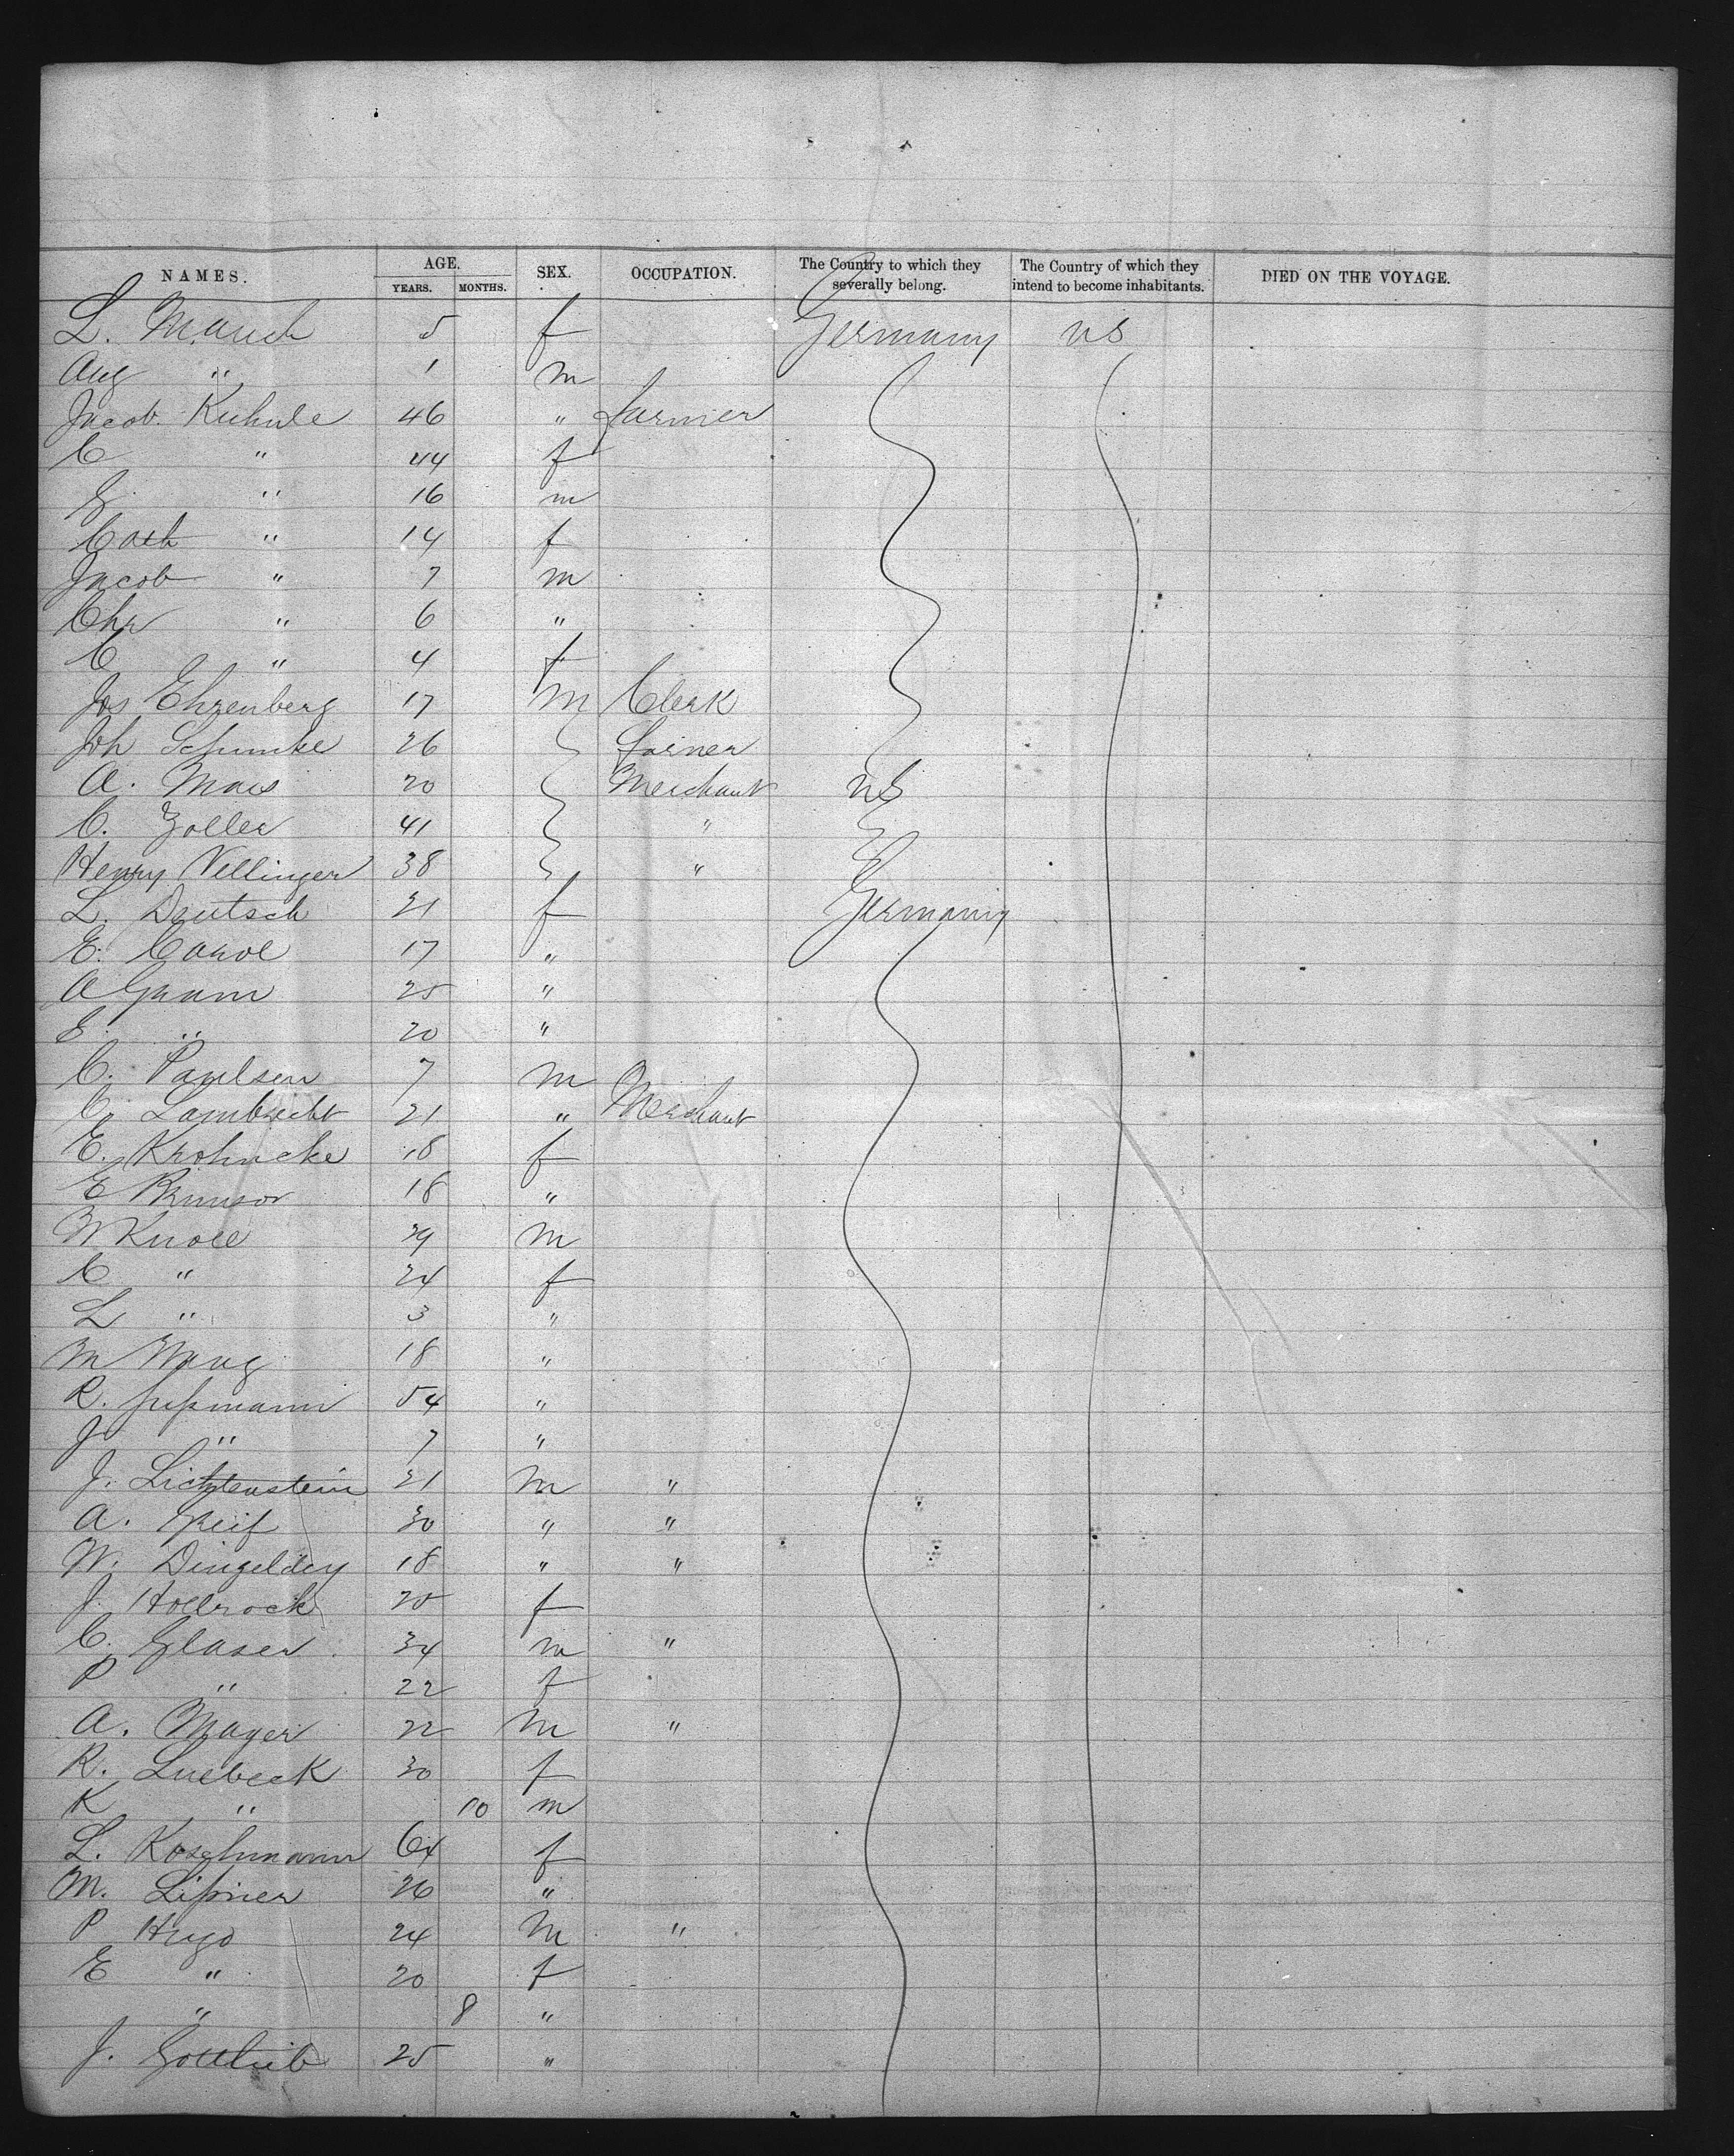 NAMES. AGE. YEARS. MONTHS. SEX. OCCUPATION. The Country to which they severally belong. The Country of which they intend to become inhabitants. DIED ON THE VOYAGE.
L. Mauch 5 f Germany US
Aug " 1 m
Jacob Kuhnle 46 " farmer
C " 44 f
G " 16 m
Cath " 14 f
Jacob " 7 m
Chr " 6 "
C " 4 f
Jos Ehrenberg 17 m Clerk
Joh 26 farmer
A. 20 Merchant US
C. Zoller 41 "
Henry Vellinger 38 "
L. Deutsch 21 f Germany
E. Carol 17 "
A Gramm 25 "
E. " 20 "
C. Paulsen 7 m
C. Lambrecht 21 " Merchant
E. Krohncke 18 f
E 18 "
Knoll 29 m
C " 24 f
L " 3 "
M 18 "
R. 54 "
J " 7 "
J. Lichtenstein 21 m "
A. Greif 30 " "
W. Dingeldey 18 " "
J. Hollrock 25 f
C. Glaser 34 m "
P " 22 f
A. Mayer 22 m "
R. Luebeck 30 f
K " 10 m
L. Koschmann 64 f
M. 26 "
P Hugo 24 m "
E " 20 f
" 8 "
J. Gottlieb 25 "